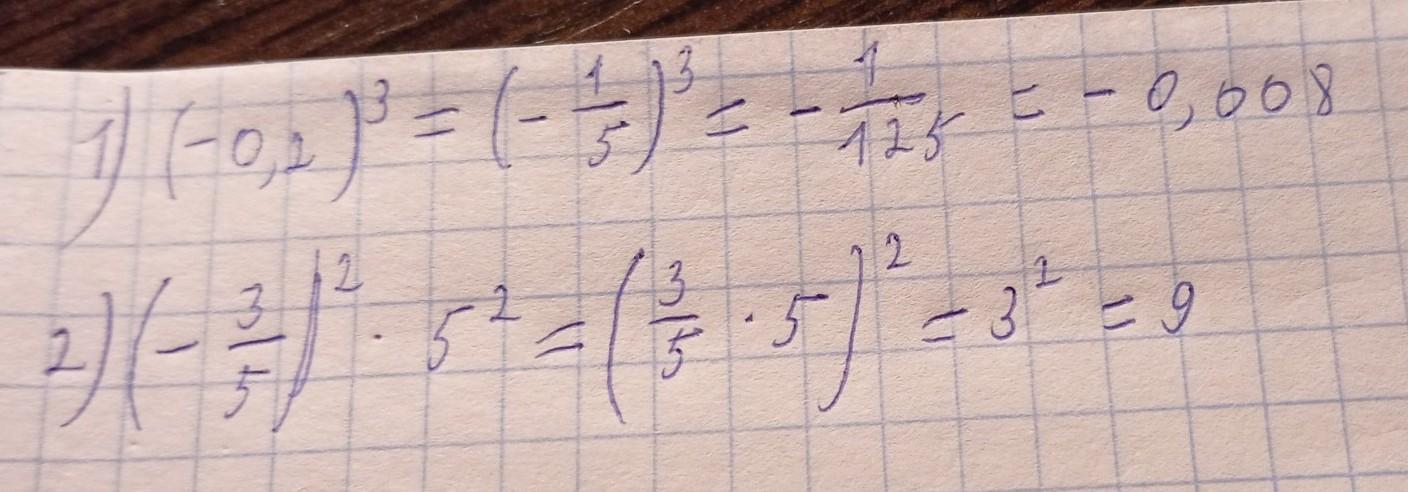 1) (-0,2)³ = (-1/5)³ = -1/125 = -0,008
2) (-3/5)² · 5² = (3/5 · 5)² = 3² = 9